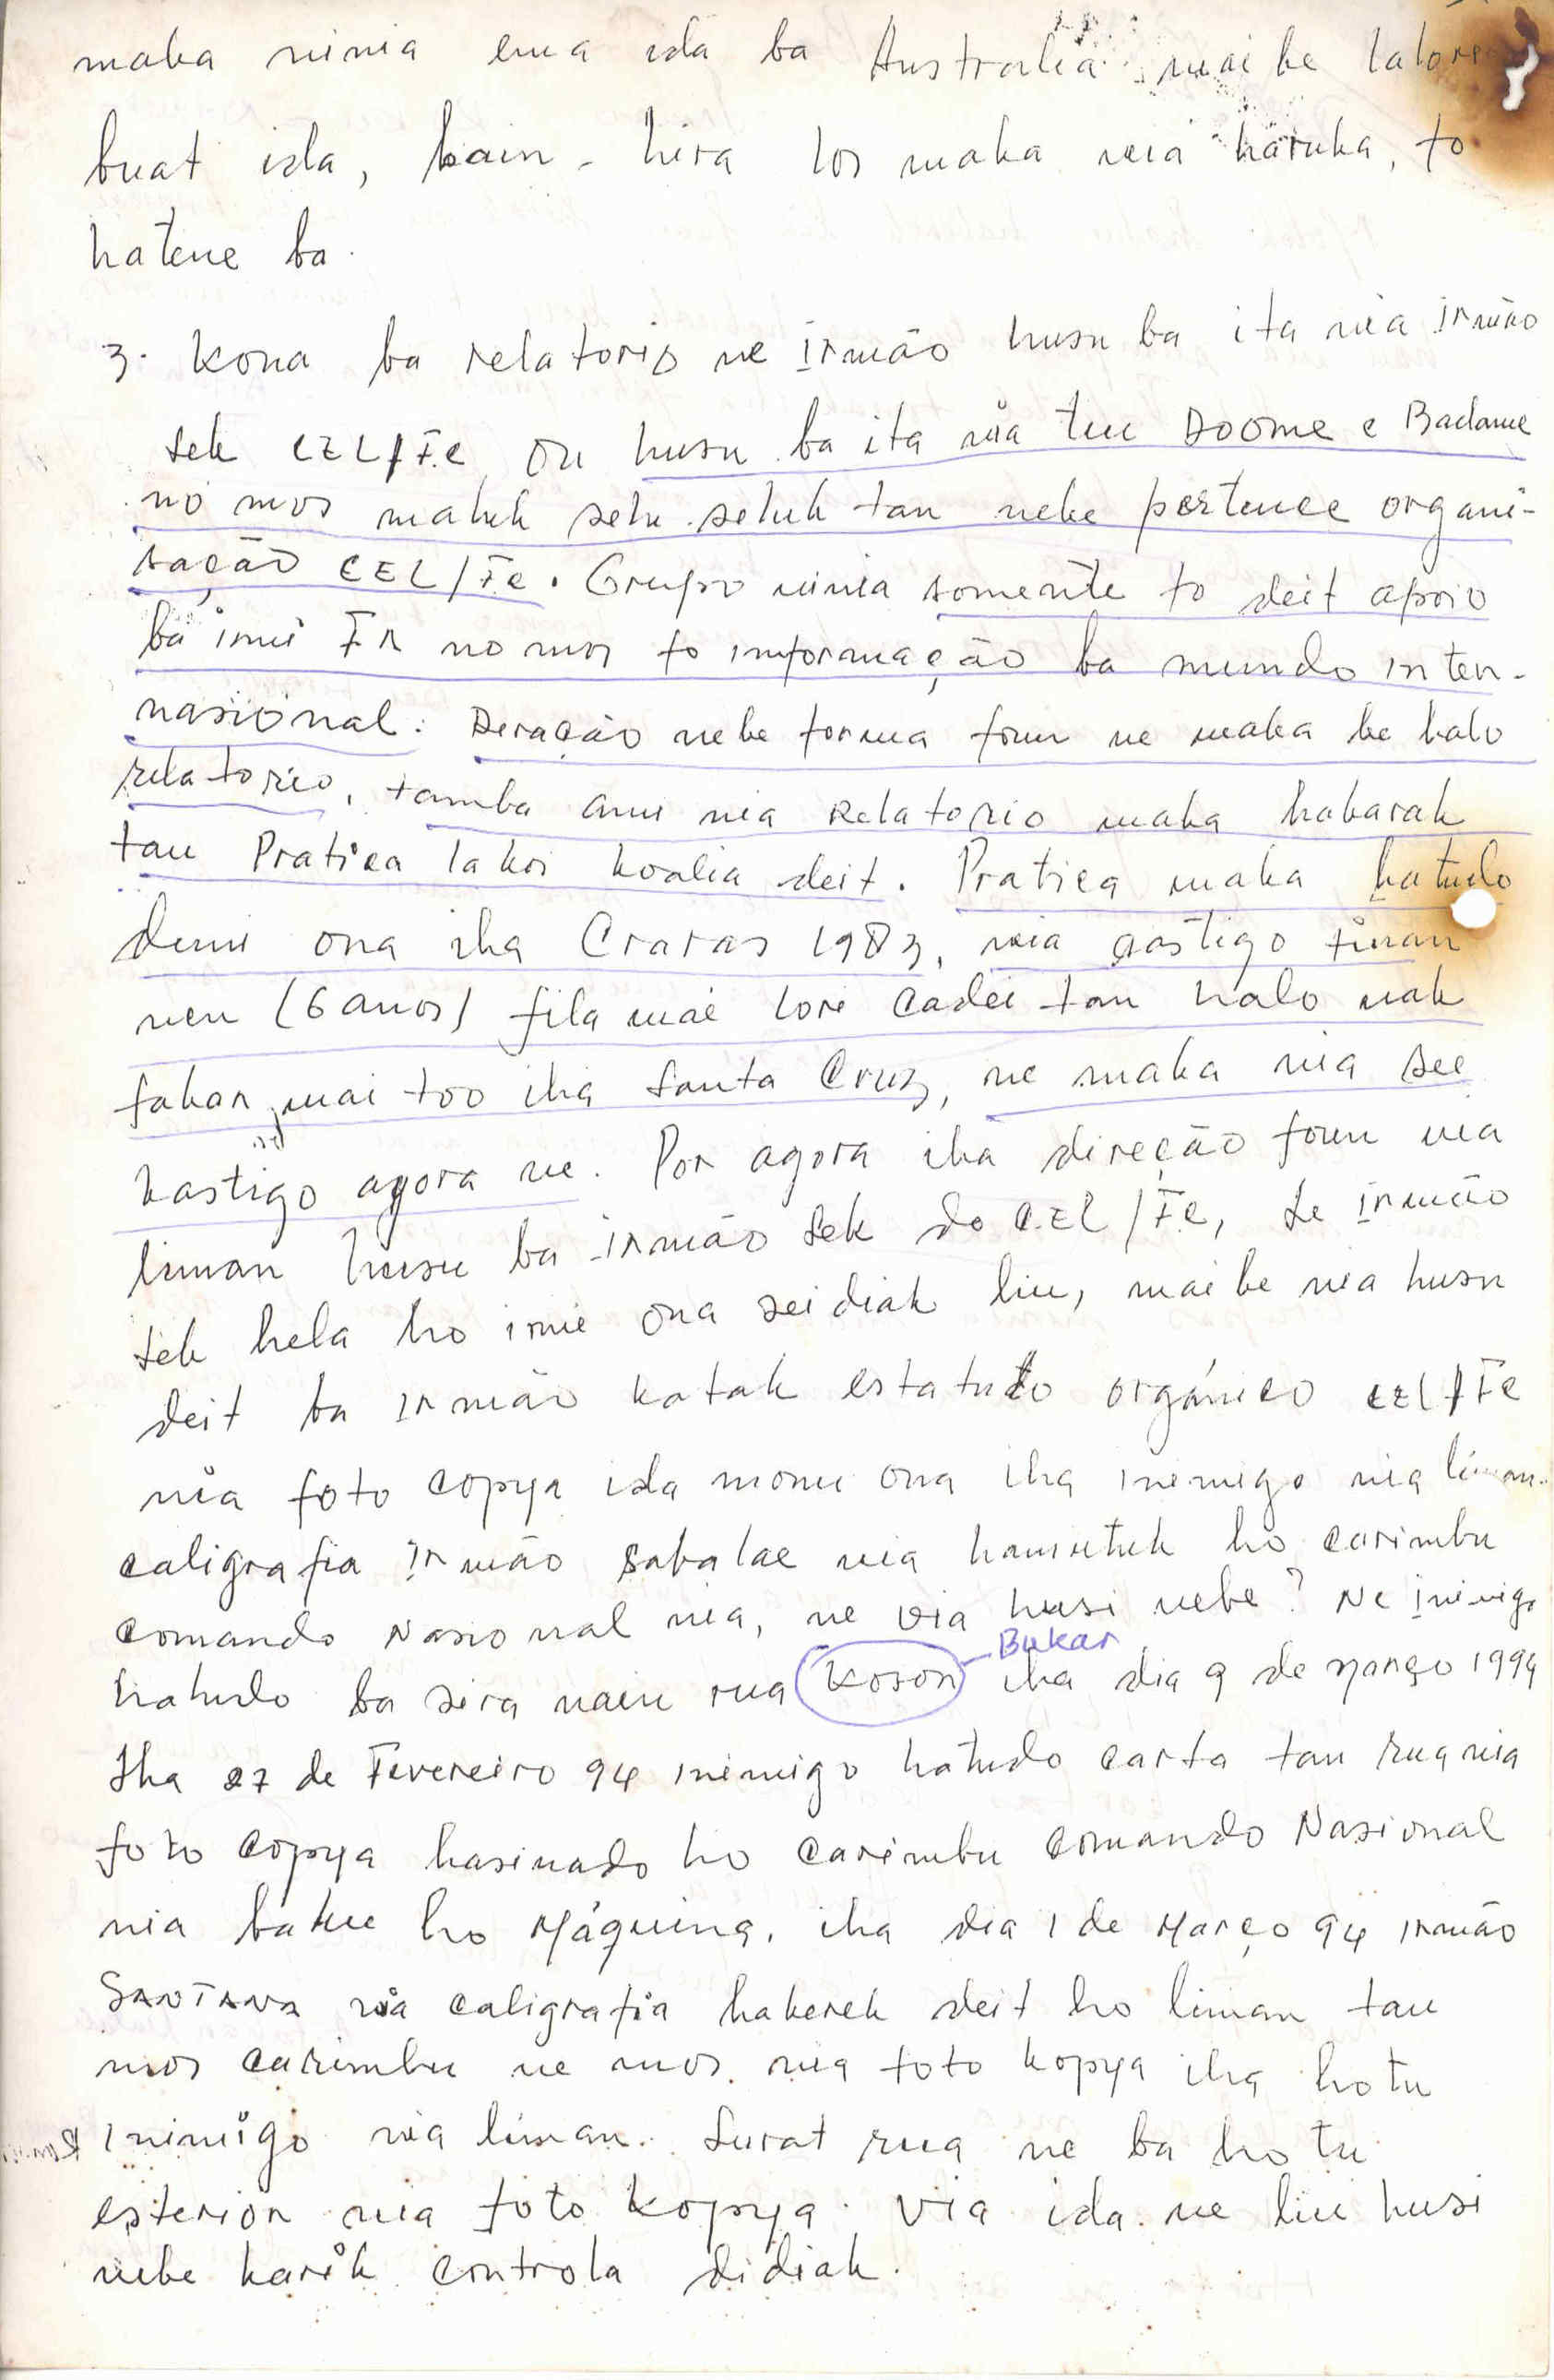 maka ninia ema ida ba Australia maibe lalori
buat ida, bain-hira los maka nia haruka, to
hatene ba.
3. Kona ba relatorio ne Irmão husu ba ita nia irmão
Sek CEL/FC ou husu ba ita nia tuu Doome e Badame
no mos maluk selu seluk tan nebe pertence organi-
sação CEL/FC. Grupo ninia somente fo deit apoio
ba imi FR no mos fo informação ba mundo inter-
nasional: Deração nebe forma foun ne maka be halo
relatorio, tamba ami nia Relatorio maka habarak
tau Pratica lakoi koalia deit. Pratica maka hatudo
duni ona iha Craras 1983, nia castigo tinan
nen (6 anos) fila mai lori cadei tan halo nak
fakar mai too iha Santa Cruz, ne maka nia see
kastigo agora ne. Por agora iha direção foun nia
liman husu ba irmão Sek do C.EL/FC, Se irmão
Sek hela ho imi ona sei diak liu, maibe nia husu
deit ba irmão katak estatuto orgánico CEL/FC
nia foto copya ida monu ona iha inimigo nia liman.
caligrafia irmão Sabalae nia hamutuk ho carimbu
comando Nasional nia, ne via husi nebe? Ne Inimigo
hatudo ba sira nain rua Koson - Bukar iha dia 9 de março 1994
Iha 27 de Fevereiro 94 inimigo hatudo carta tan rua nia
foto copya hasinado ho carimbu comando Nasional
nia baku ho Máquina, iha dia 1 de Março 94 irmão
SANTANA nia caligrafia hakerek deit ho liman tau
mos carimbu ne mos nia foto kopya iha hotu
inimigo nia liman. Surat rua ne ba hotu
esterior nia foto kopya. Via ida ne liu husi
nebe karik controla didiak.